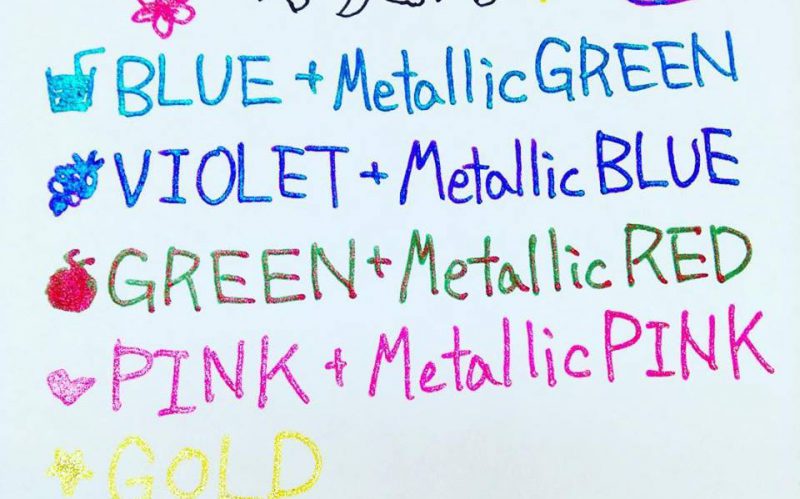 BLUE + Metallic GREEN
VIOLET + Metallic BLUE
GREEN + Metallic RED
PINK + Metallic PINK
GOLD